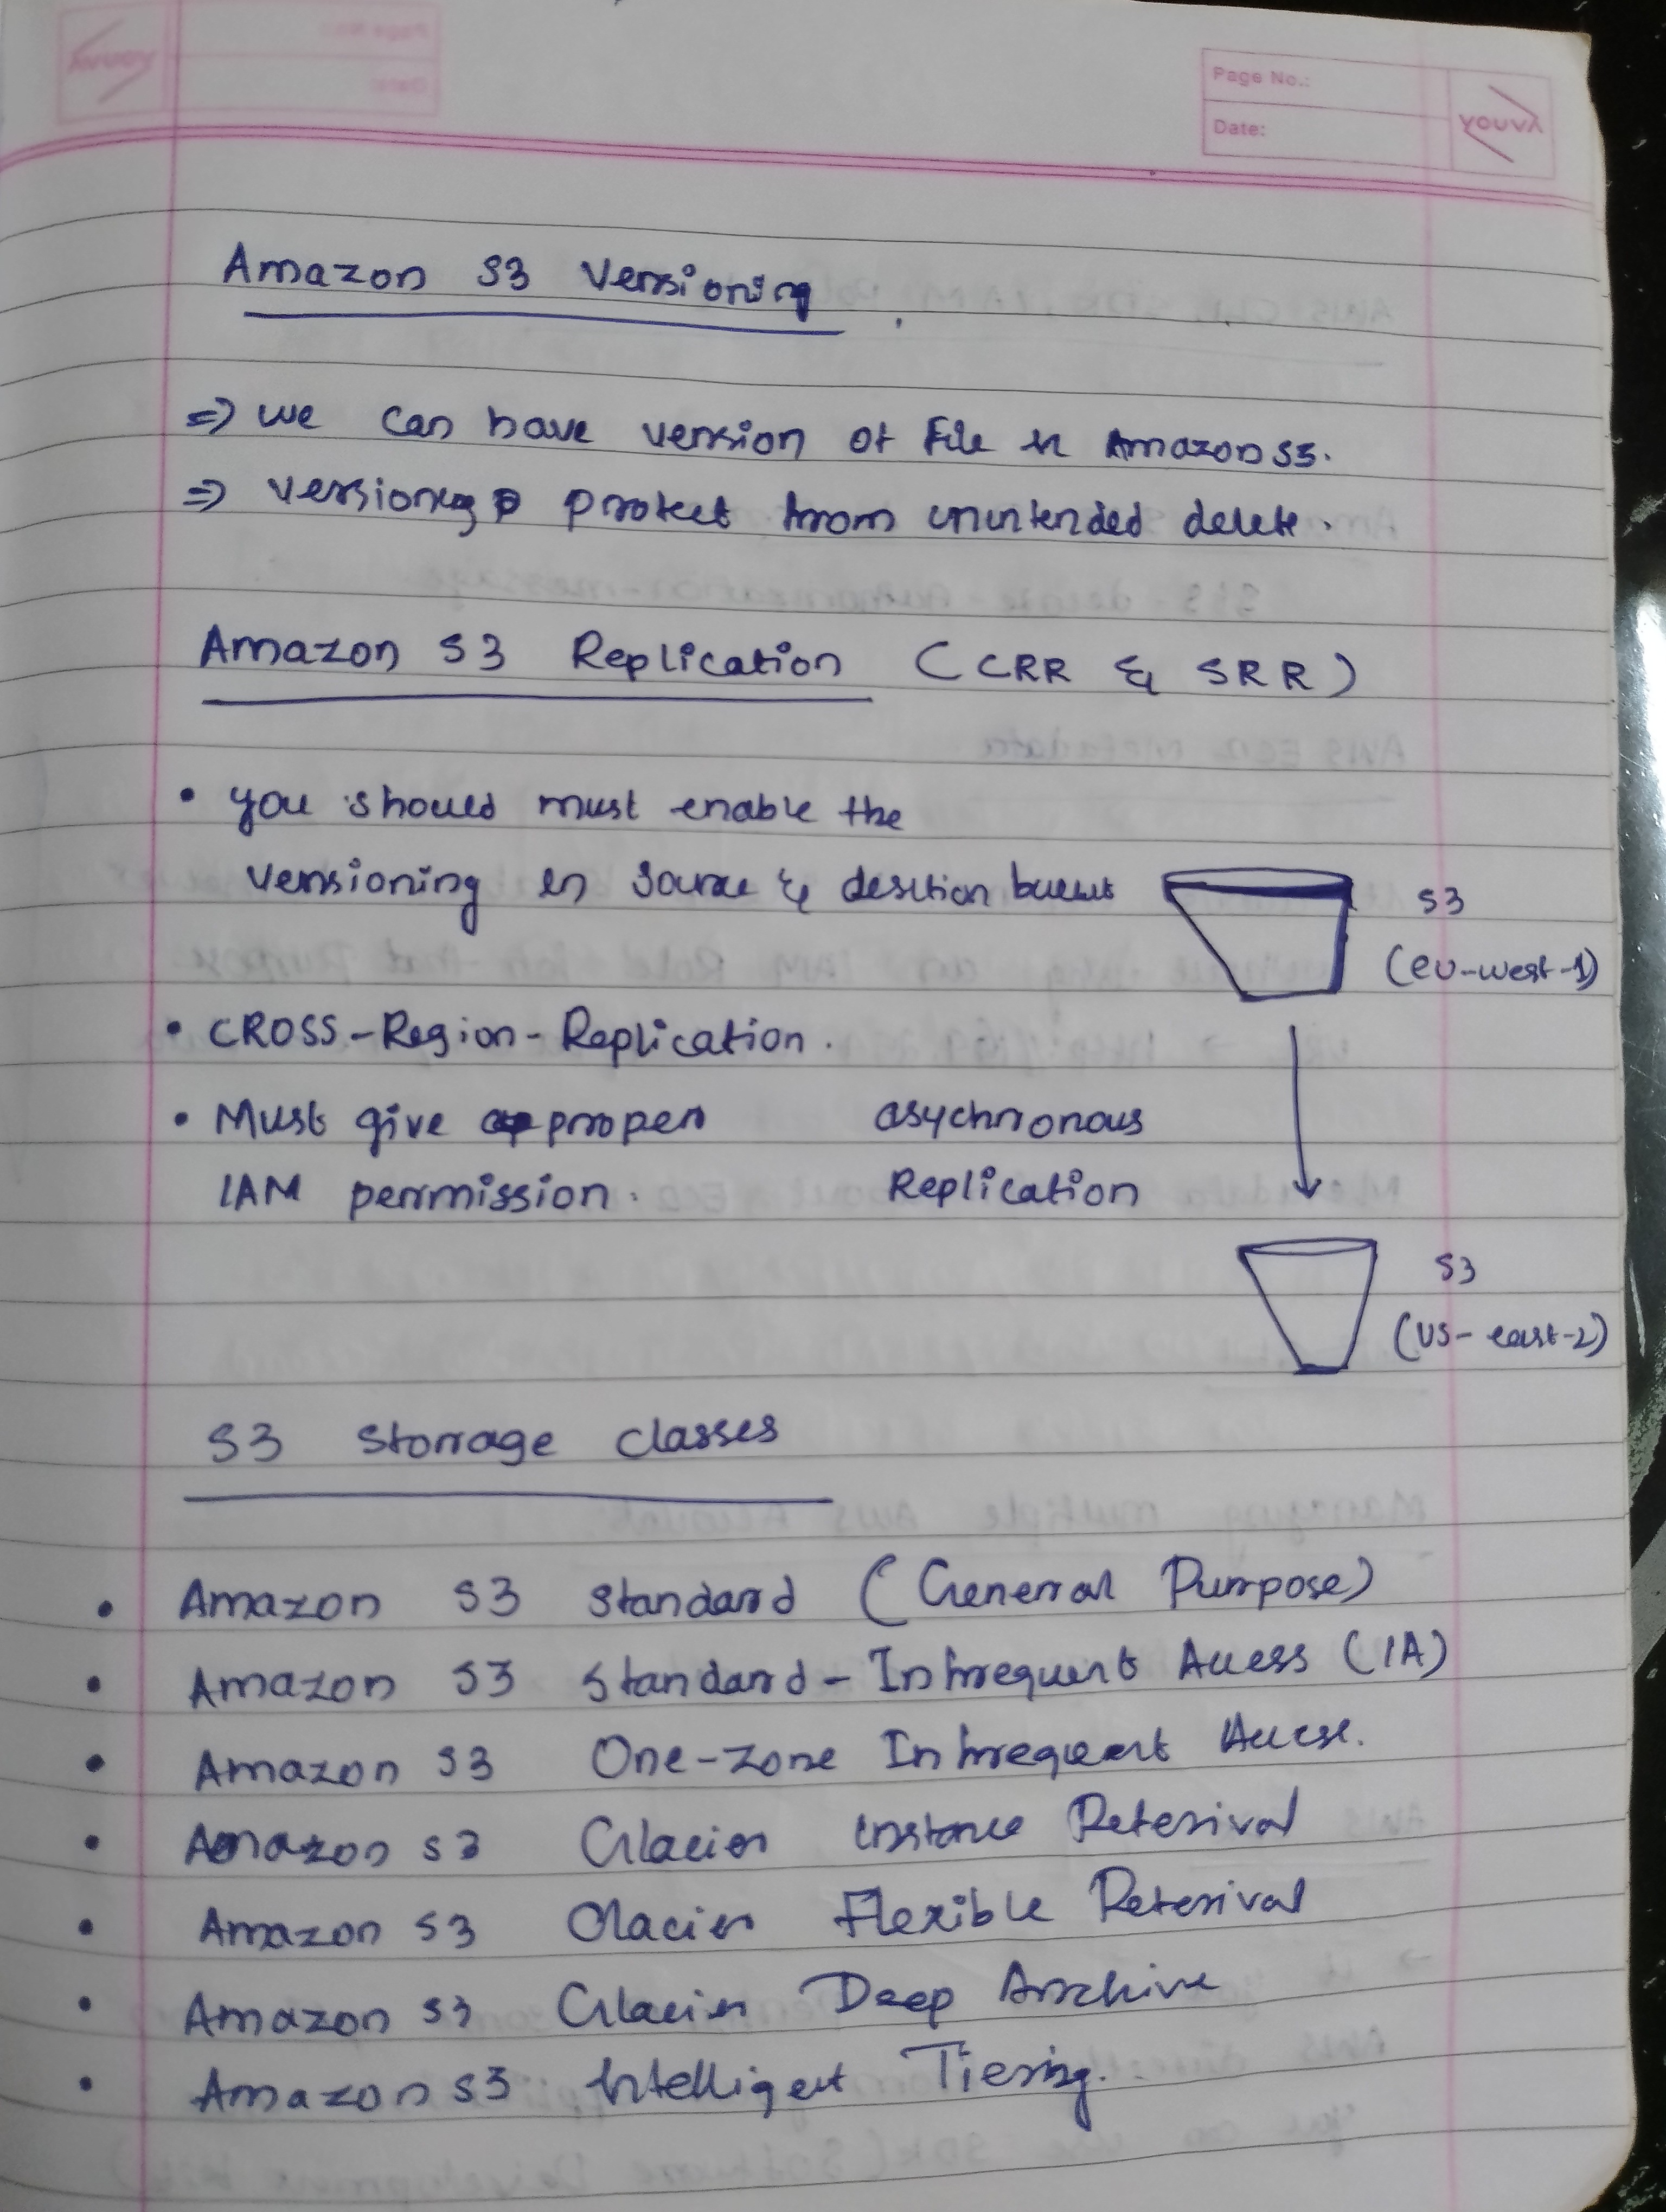 Page No.:
Date:
YOUVA
Amazon S3 Versioning
⇒ we can have version of file in Amazon S3.
⇒ versioning protect from unintended delete.
Amazon S3 Replication (CCRR & SRR)
• you should must enable the
versioning in source & desction bucket
S3
(eu-west-1)
• CROSS-Region-Replication.
• Must give proper
IAM permission.
asychronous
Replication
S3
(US-east-2)
S3 Storage classes
• Amazon S3 Standard (General Purpose)
• Amazon S3 Standard-Infrequent Access (IA)
• Amazon S3 One-Zone Infrequent Access.
• Amazon S3 Glacier Instance Reterival
• Amazon S3 Glacier Flexible Reterival
• Amazon S3 Glacier Deep Archive
• Amazon S3 Intelligent Tiering.